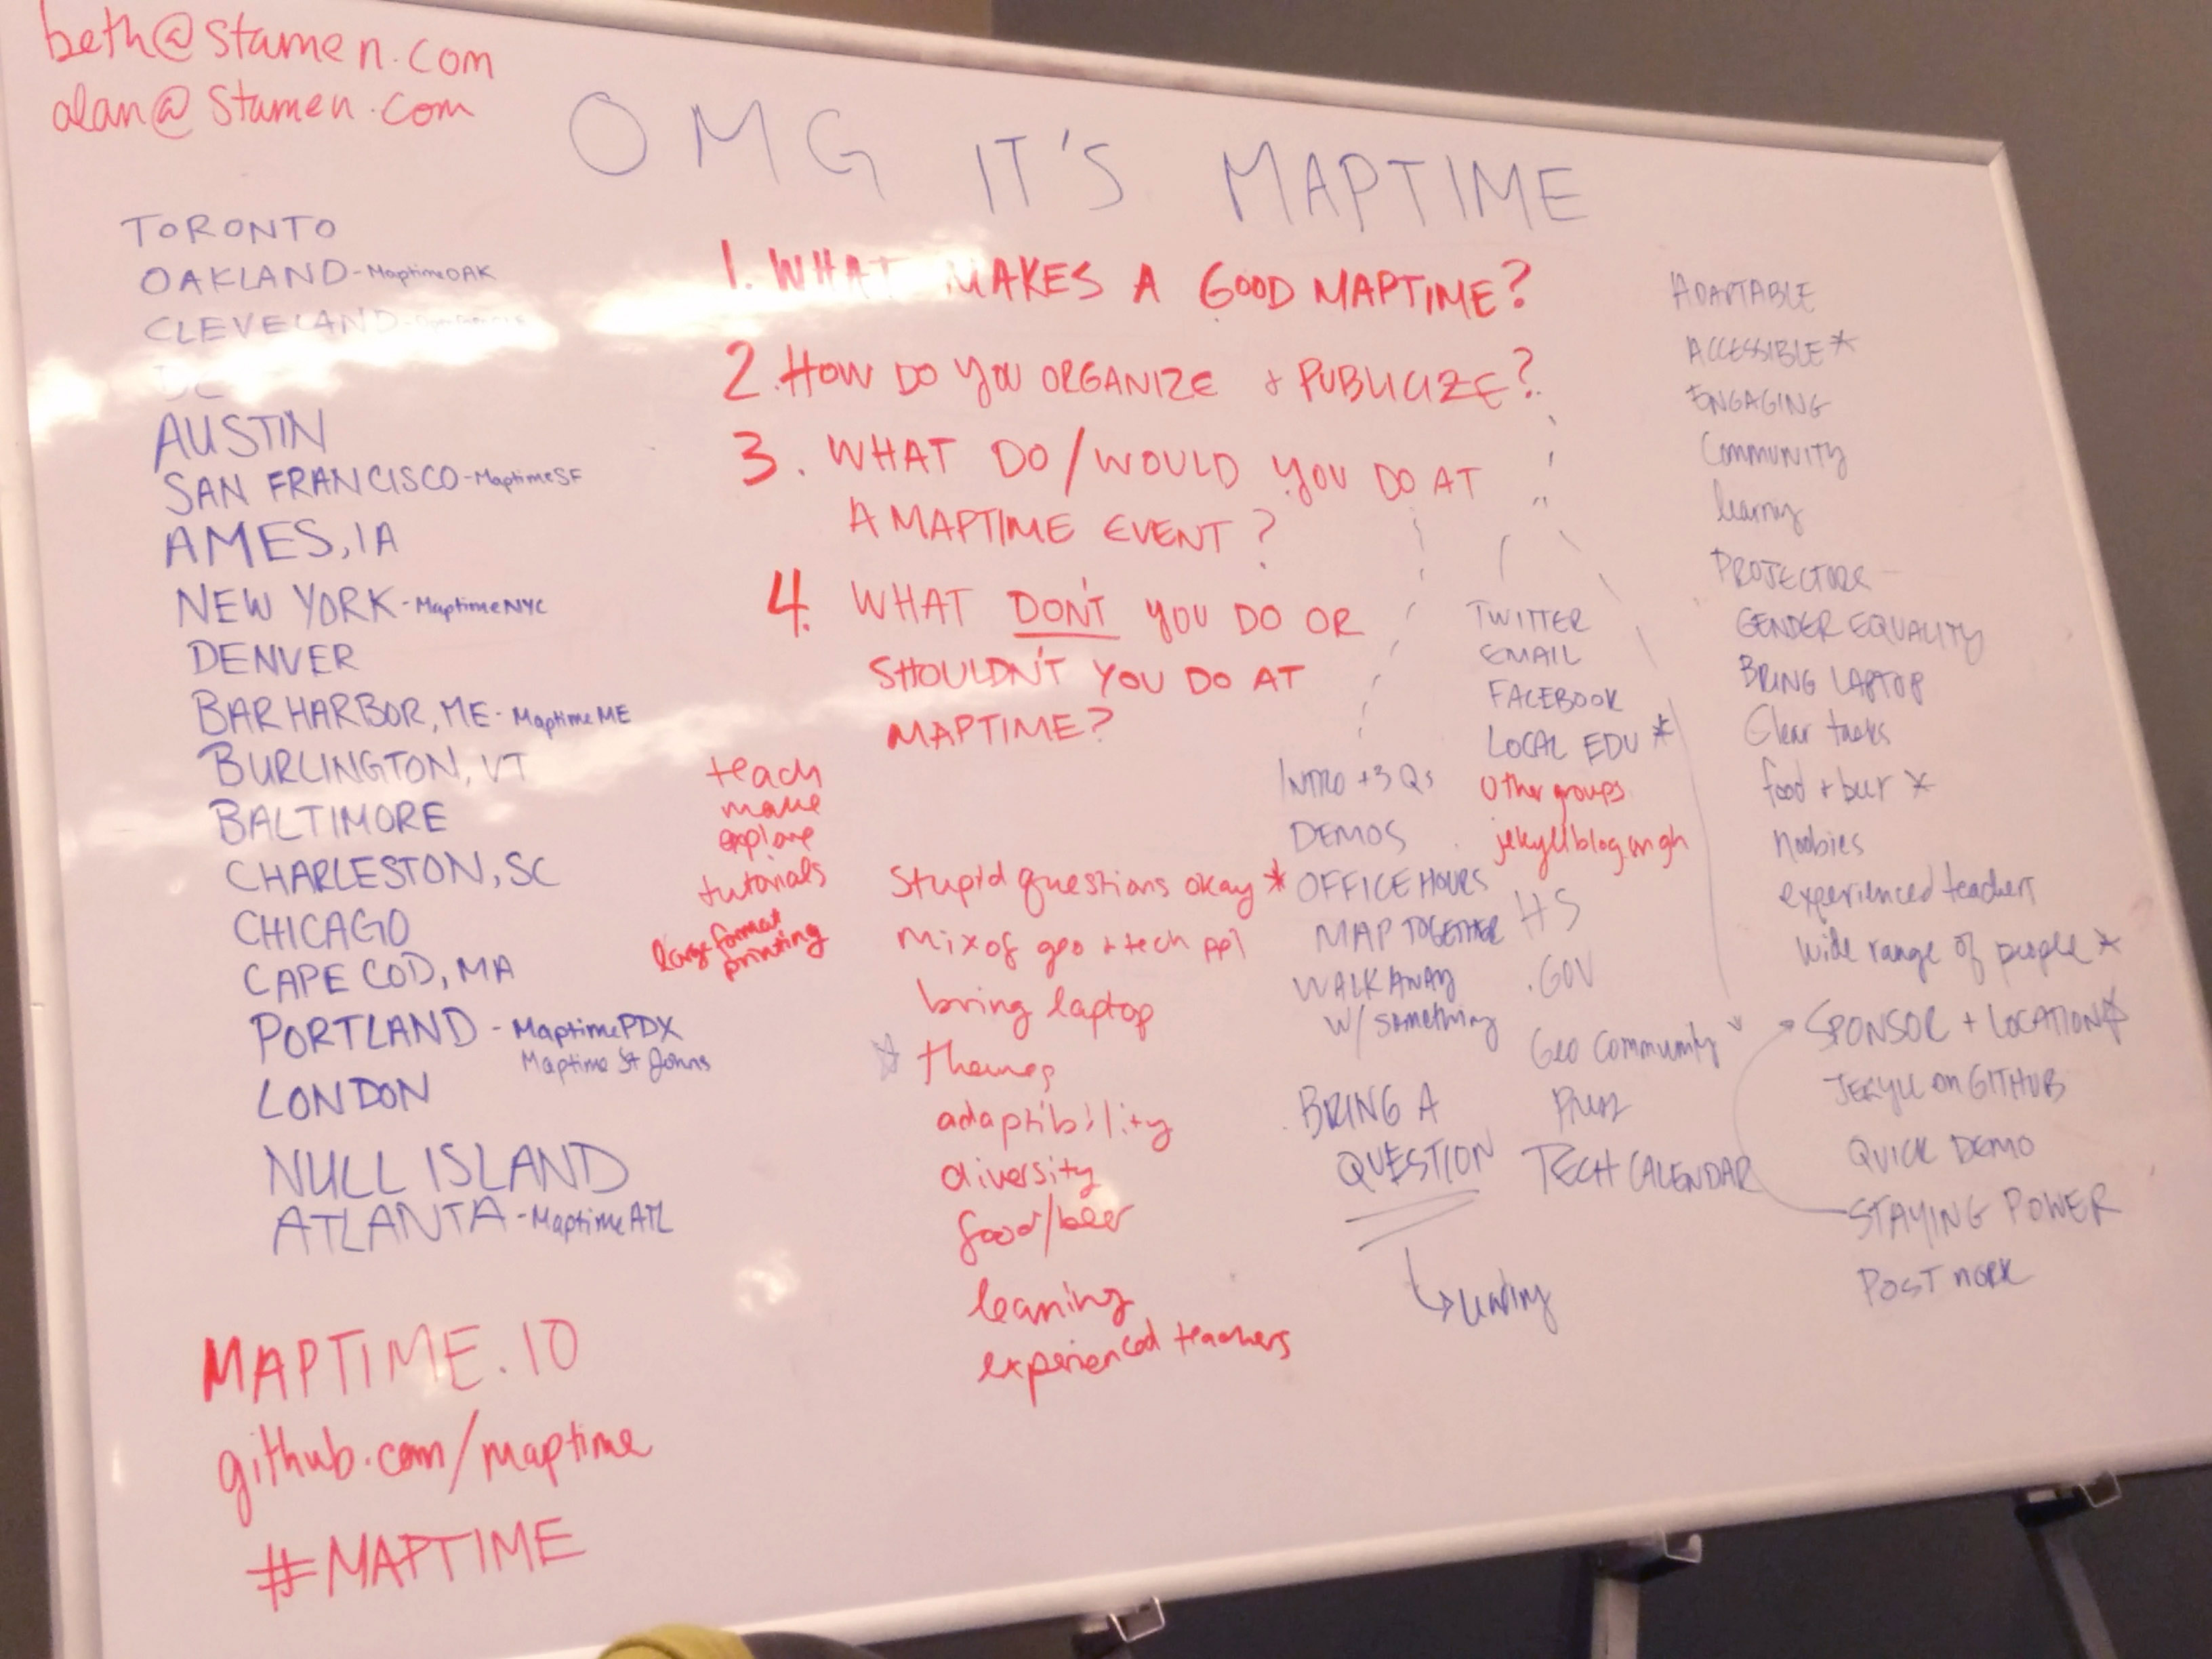 beth@stamen.com
alan@stamen.com
OMG IT'S MAPTIME
TORONTO
OAKLAND - MaptimeOAK
CLEVELAND -
DC
AUSTIN
SAN FRANCISCO - MaptimeSF
AMES, IA
NEW YORK - MaptimeNYC
DENVER
BAR HARBOR, ME - MaptimeME
BURLINGTON, VT
BALTIMORE
CHARLESTON, SC
CHICAGO
CAPE COD, MA
PORTLAND - MaptimePDX
Maptime St Johns
LONDON
NULL ISLAND
ATLANTA - MaptimeATL
MAPTIME.IO
github.com/maptime
#MAPTIME
1. WHAT MAKES A GOOD MAPTIME?
2. HOW DO YOU ORGANIZE + PUBLICIZE?
3. WHAT DO/WOULD YOU DO AT
A MAPTIME EVENT?
4. WHAT DON'T YOU DO OR
SHOULDN'T YOU DO AT
MAPTIME?
teach
make
explore
tutorials
large format
printing
Stupid questions okay *
mix of geo + tech ppl
bring laptop
☆ themes
adaptibility
diversity
food/beer
learning
experienced teachers
INTRO + 3 Qs
DEMOS
OFFICE HOURS
MAP TOGETHER
WALK AWAY
w/ something
BRING A
QUESTION
TWITTER
EMAIL
FACEBOOK
LOCAL EDU *
Other groups
jekyll blog on gh
HS
.GOV
Geo Community
TECH CALENDAR
ADAPTABLE
ACCESSIBLE *
ENGAGING
COMMUNITY
learning
PROJECTOR
GENDER EQUALITY
BRING LAPTOP
Clear tasks
food + beer *
noobies
experienced teachers
wide range of people *
SPONSOR + LOCATION ☆
JEKYLL on GITHUB
QUICK DEMO
STAYING POWER
POST WORK